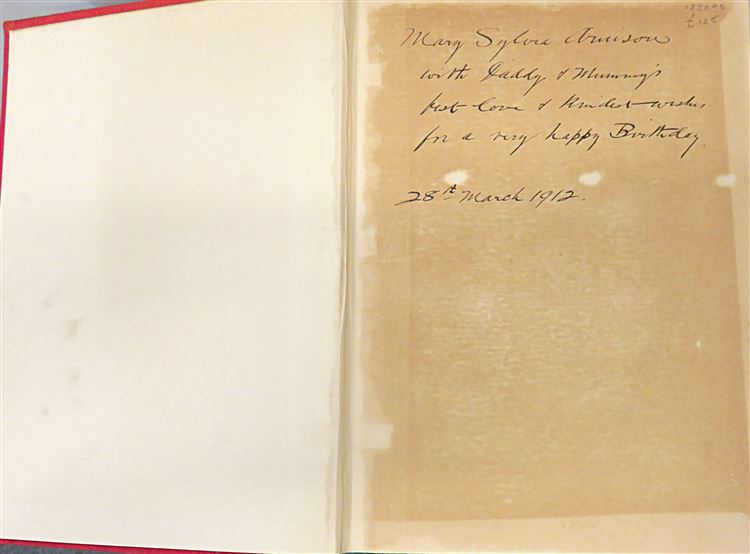 122692
£125
Mary Sylvia Arnison
with Daddy & Mummy's
best love & kindest wishes
for a very happy Birthday.
28th March 1912.